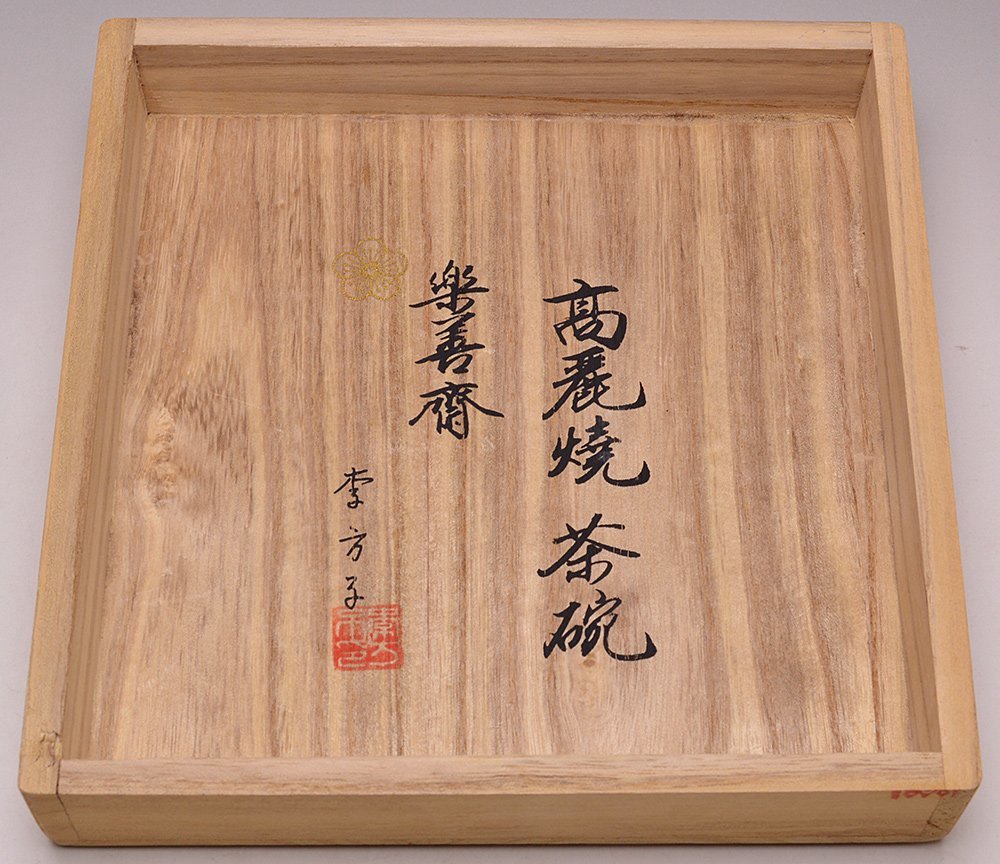 高麗焼 茶碗
樂善齋
李方子